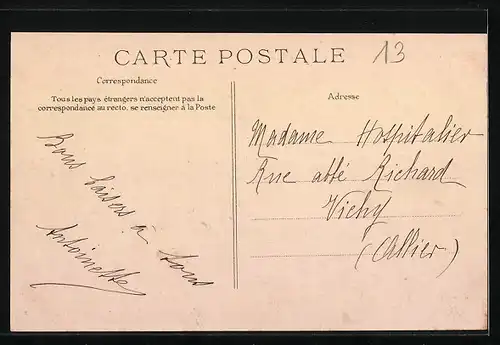 CARTE POSTALE
13
Correspondance
Tous les pays étrangers n'acceptent pas la
correspondance au recto, se renseigner à la Poste
Bons baisers à tous
Antoinette
Adresse
Madame Hospitalier
Rue abbé Richard
Vichy
(Allier)